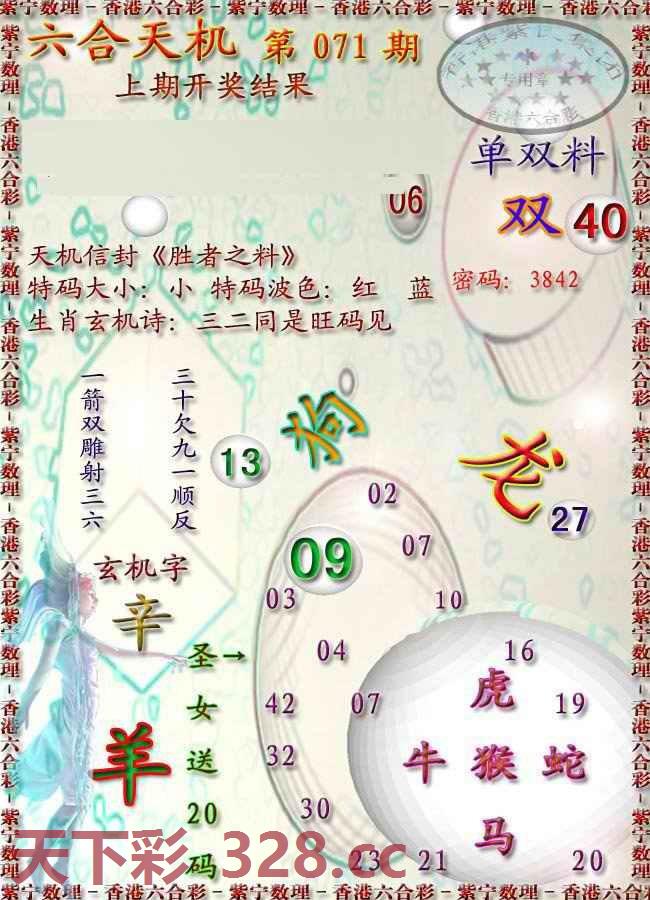 紫宁数理－香港六合彩－紫宁数理－香港六合彩－紫宁数理－香港六合彩
六合天机 第 071 期
上期开奖结果
专用章
香港六合彩
单双料
06
双 40
天机信封《胜者之料》
特码大小：小 特码波色：红 蓝 密码：3842
生肖玄机诗：三二同是旺码见
一箭双雕射三六
三十欠九一顺反
13
狗
龙
27
02
09
07
玄机字
辛
03
10
圣女送20码→
04
16
羊
42
07
虎
19
32
牛 猴 蛇
30
马
23
21
20
天下彩.328.cc
紫宁数理－香港六合彩－紫宁数理－香港六合彩－紫宁数理－香港六合彩